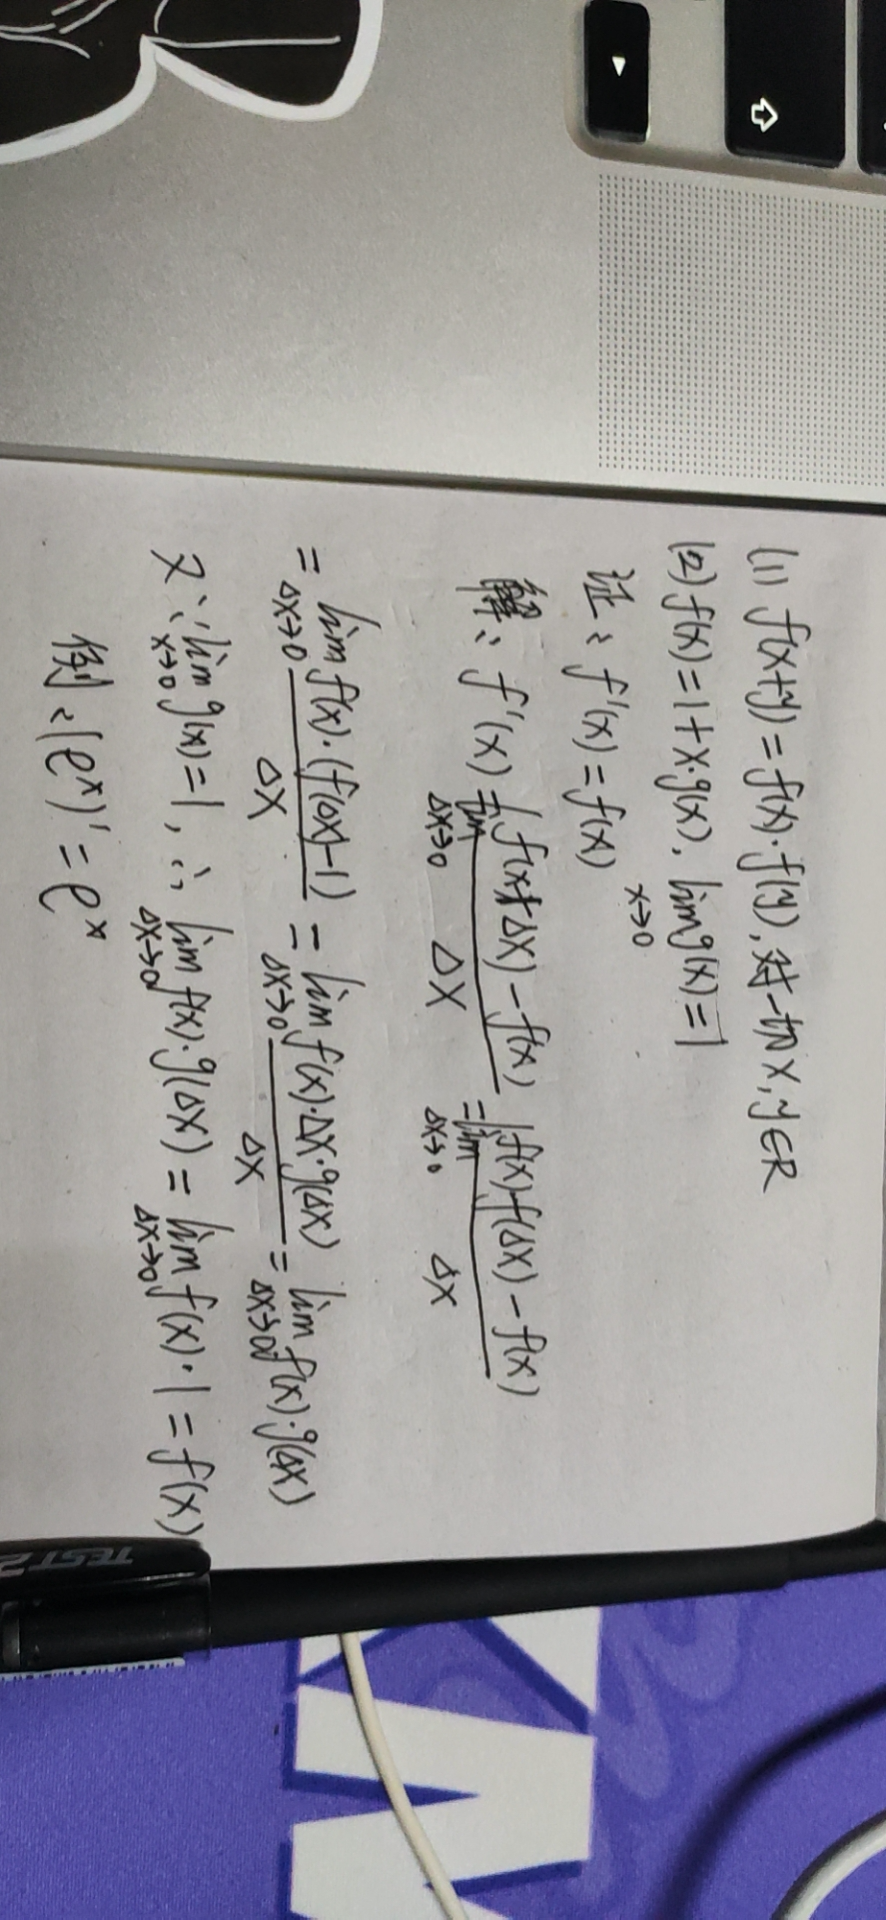 (1) f(x+y)=f(x)·f(y), 对一切x,y∈R
(2) f(x)=1+x·g(x), lim x→0 g(x)=1
证: f'(x)=f(x)
解: f'(x)=lim Δx→0 (f(x+Δx)-f(x))/Δx =lim Δx→0 (f(x)f(Δx)-f(x))/Δx
=lim Δx→0 f(x)·(f(Δx)-1)/Δx = lim Δx→0 f(x)·Δx·g(Δx)/Δx = lim Δx→0 f(x)·g(Δx)
又∵lim x→0 g(x)=1, ∴ lim Δx→0 f(x)·g(Δx) = lim Δx→0 f(x)·1 = f(x)
例: (e^x)'=e^x
TEST 2